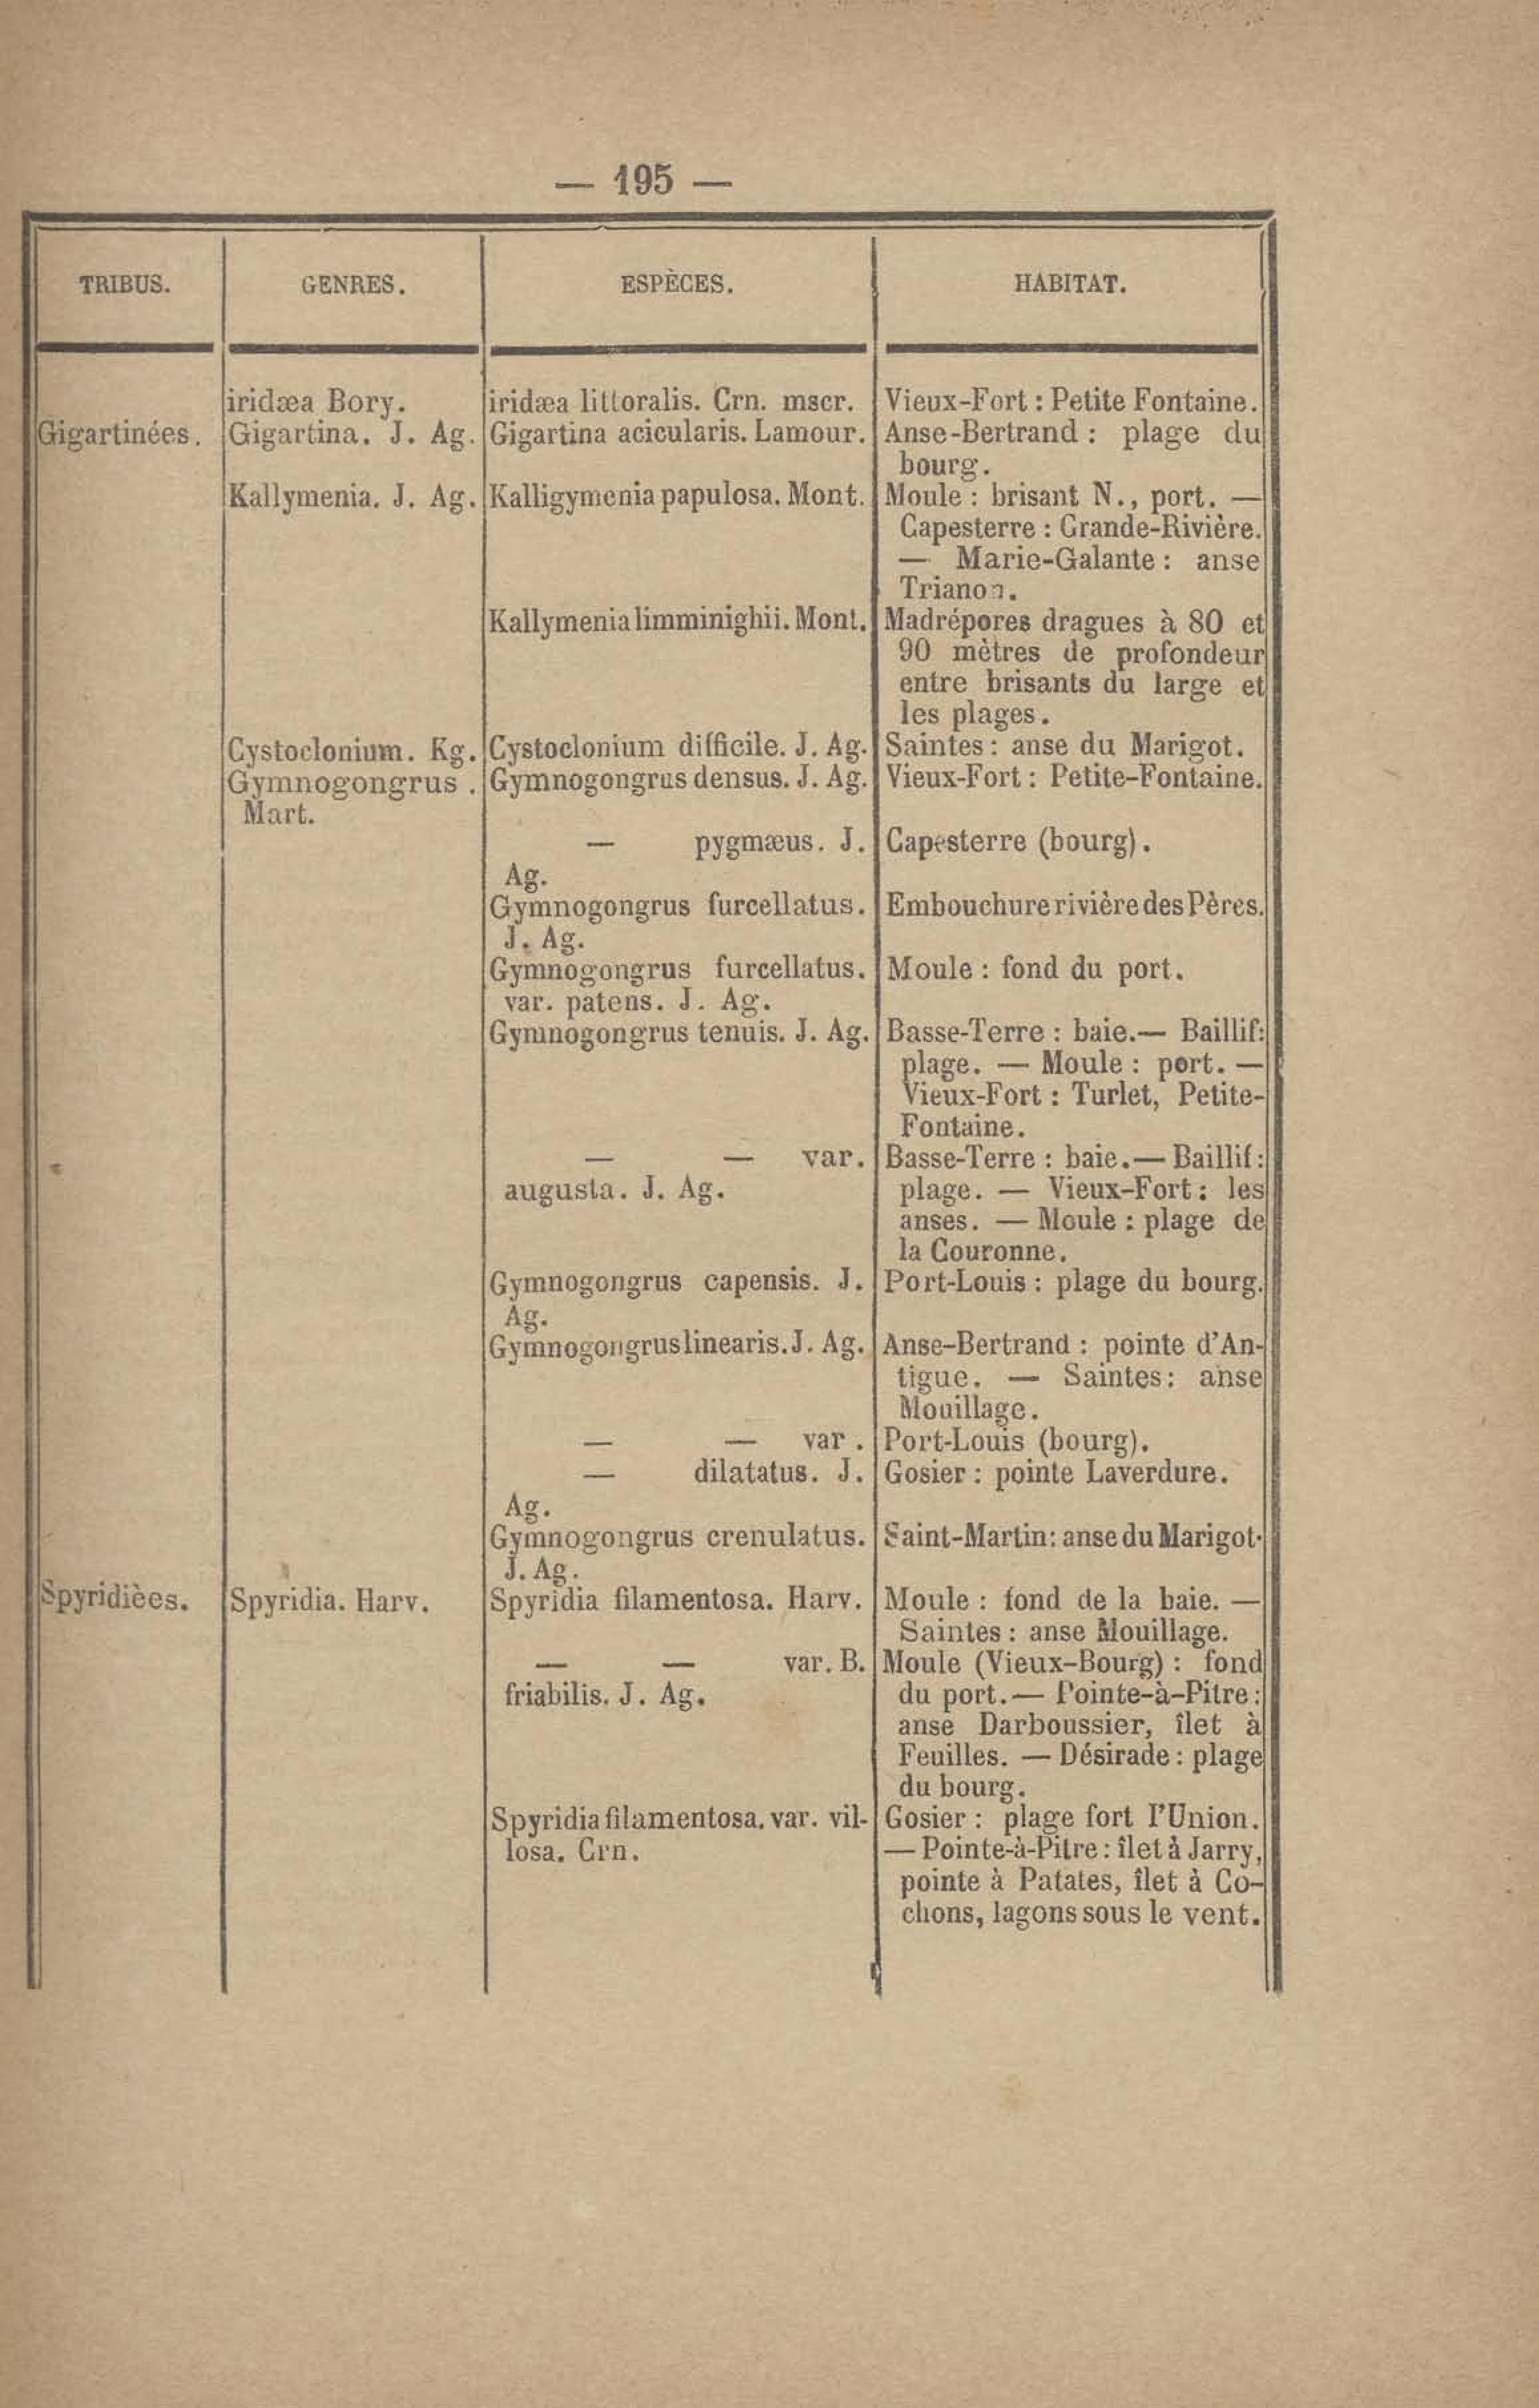 — 195 —
TRIBUS. GENRES. ESPÈCES. HABITAT.
iridæa Bory. iridæa littoralis. Crn. mscr. Vieux-Fort : Petite Fontaine.
Gigartinées. Gigartina. J. Ag. Gigartina acicularis. Lamour. Anse-Bertrand : plage du
bourg.
Kallymenia. J. Ag. Kalligymenia papulosa. Mont. Moule : brisant N., port. —
Capesterre : Grande-Rivière.
— Marie-Galante : anse
Trianon.
Kallymenia limminighii. Mont. Madrépores dragues à 80 et
90 mètres de profondeur
entre brisants du large et
les plages.
Cystoclonium. Kg. Cystoclonium difficile. J. Ag. Saintes : anse du Marigot.
Gymnogongrus . Gymnogongrus densus. J. Ag. Vieux-Fort : Petite-Fontaine.
Mart.
— pygmæus. J. Capesterre (bourg).
Ag.
Gymnogongrus furcellatus. Embouchure rivière des Pères.
J. Ag.
Gymnogongrus furcellatus. Moule : fond du port.
var. patens. J. Ag.
Gymnogongrus tenuis. J. Ag. Basse-Terre : baie. — Baillif :
plage. — Moule : port. —
Vieux-Fort : Turlet, Petite-
Fontaine.
— — var. Basse-Terre : baie. — Baillif :
augusta. J. Ag. plage. — Vieux-Fort : les
anses. — Moule : plage de
la Couronne.
Gymnogongrus capensis. J. Port-Louis : plage du bourg.
Ag.
Gymnogongrus linearis. J. Ag. Anse-Bertrand : pointe d'An-
tigue. — Saintes : anse
Mouillage.
— — var . Port-Louis (bourg).
— dilatatus. J. Gosier : pointe Laverdure.
Ag.
Gymnogongrus crenulatus. Saint-Martin : anse du Marigot.
J. Ag.
Spyridièes. Spyridia. Harv. Spyridia filamentosa. Harv. Moule : fond de la baie. —
Saintes : anse Mouillage.
— — var. B. Moule (Vieux-Bourg) : fond
friabilis. J. Ag. du port. — Pointe-à-Pitre :
anse Darboussier, îlet à
Feuilles. — Désirade : plage
du bourg.
Spyridia filamentosa. var. vil- Gosier : plage fort l'Union.
losa. Crn. — Pointe-à-Pitre : îlet à Jarry,
pointe à Patates, îlet à Co-
chons, lagons sous le vent.